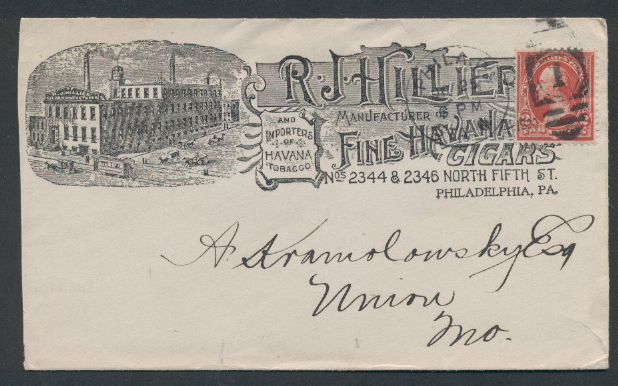 R. J. HILLIER
MANUFACTURER OF
FINE HAVANA
CIGARS
AND
IMPORTERS
OF
HAVANA
TOBACCO
Nos 2344 & 2346 NORTH FIFTH ST.
PHILADELPHIA, PA.
PM
A. Kramolowsky Esq
Union
Mo.